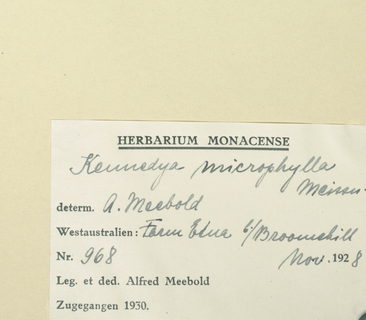 HERBARIUM MONACENSE
Kennedya microphylla
Meissn.
determ. A. Meebold
Westaustralien: Farm Etna b/Broomehill
Nr. 968 Nov. 1928
Leg. et ded. Alfred Meebold
Zugegangen 1930.